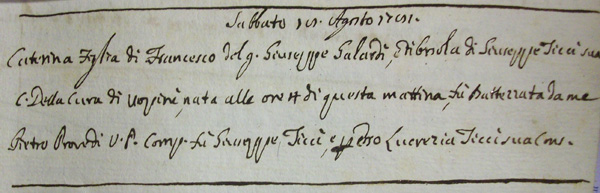 Sabbato Agosto
Caterina figlia di Francesco del q. Giuseppe Galardi, e di di Giuseppe Ticci sua
C. Della Cura di nata alle ore di questa mattina, fù Battezzata da me
Pietro P. Comp. fù Giuseppe Ticci, e Lucrezia Ticci sua Cons.